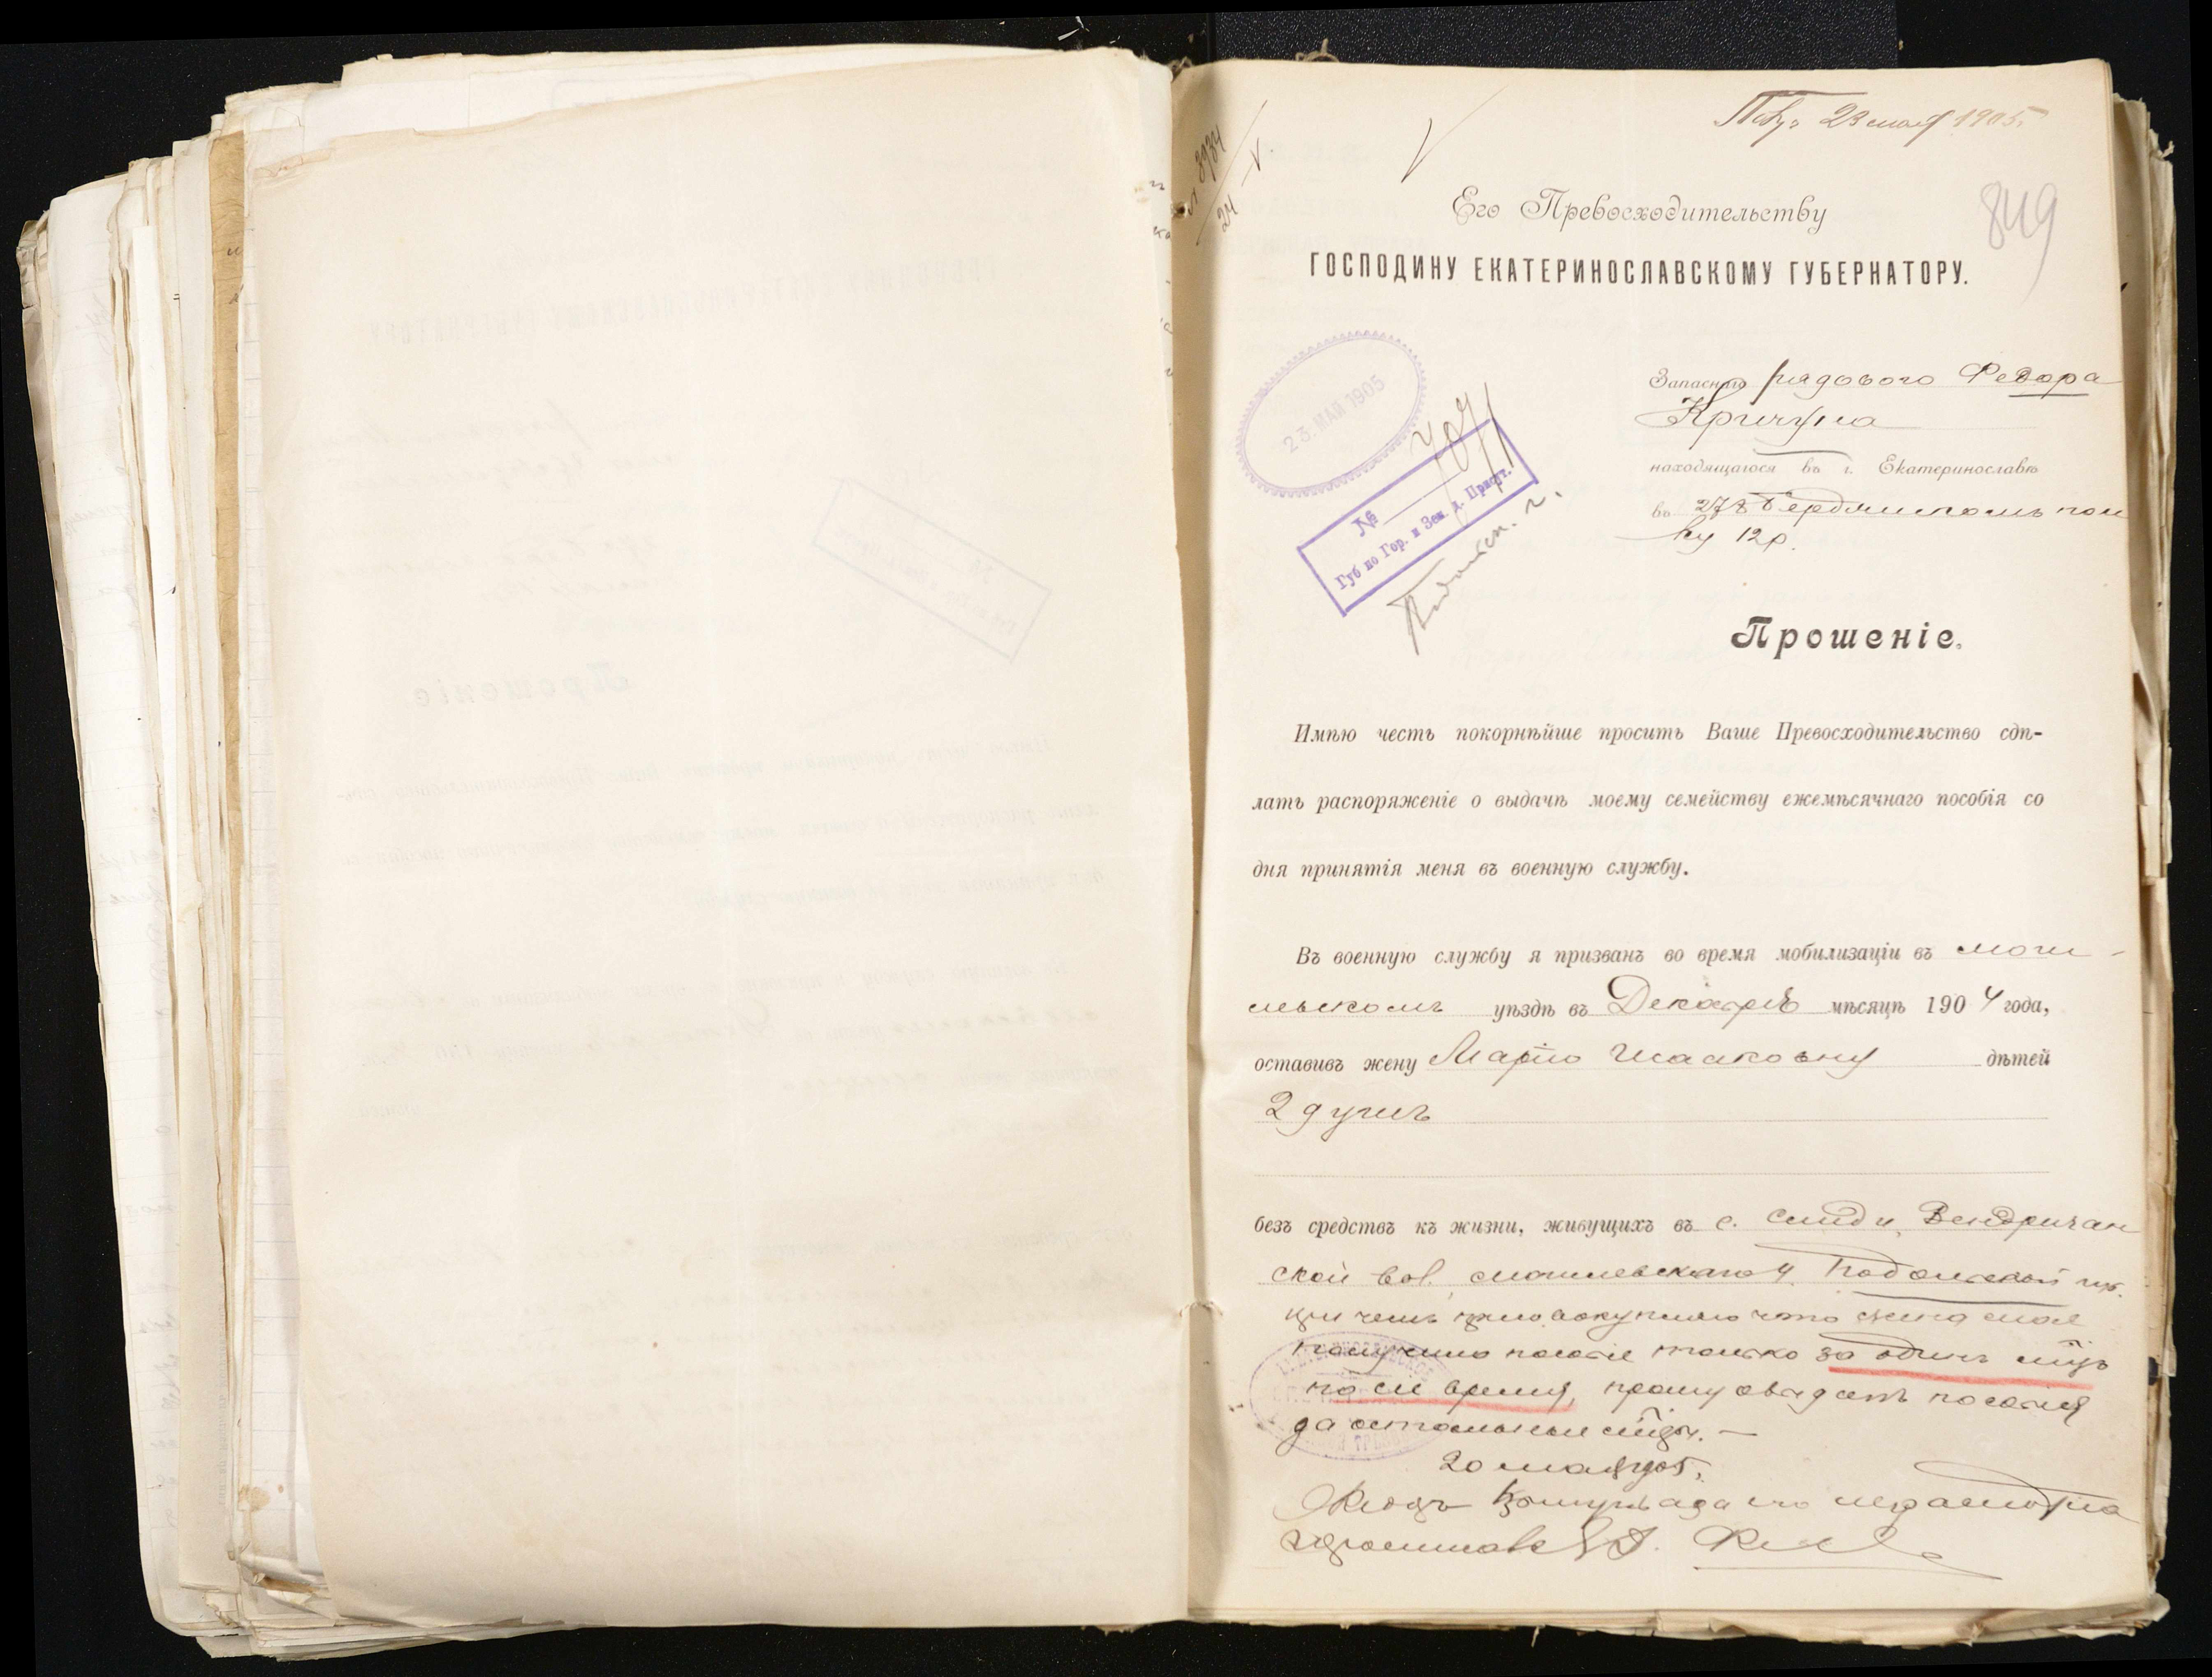 23 мая 1905.
№ 8984
24 – V.
Его Превосходительству
849
ГОСПОДИНУ ЕКАТЕРИНОСЛАВСКОМУ ГУБЕРНАТОРУ.
23. МАЯ 1905
№
Губ по Гор. и Зем. д. Прис.
Подольск. г.
Запаснаго рядового Федора
Кричуна
находящагося въ г. Екатеринославѣ
въ 278 Бердянскомъ пол
ку 12 р.
Прошеніе.
Имѣю честь покорнѣйше просить Ваше Превосходительство сдѣ-
лать распоряженіе о выдачѣ моему семейству ежемѣсячнаго пособія со
дня принятія меня въ военную службу.
Въ военную службу я призванъ во время мобилизаціи въ моги-
льскомъ уѣздѣ въ Декабрѣ мѣсяцѣ 1904 года,
оставивъ жену Марію Исаковну дѣтей
2 душъ
безъ средствъ къ жизни, живущихъ въ с. Вендричан
ской вол. могилевскаго у. Подольской губ.
при чемъ что жена моя
получила пособіе только за одинъ мѣц
по сие время, прошу выдать пособія
за остальные мѣцы. —
20 мая 1905,